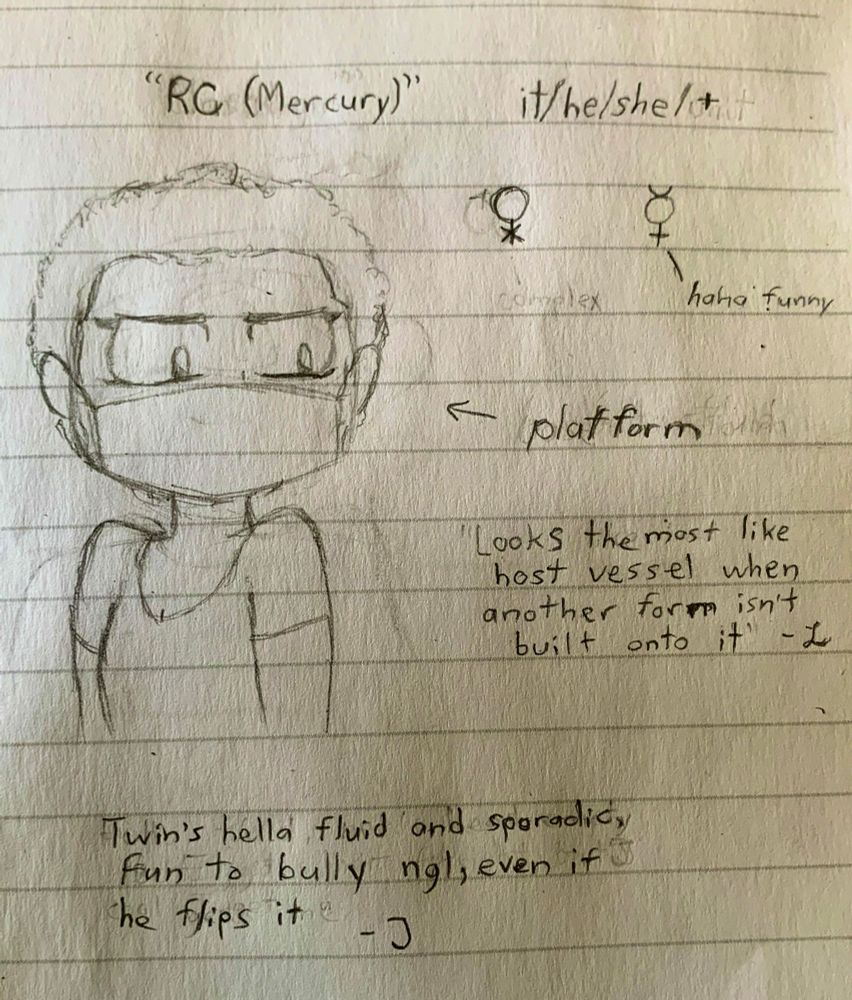 "RC (Mercury)" it/he/she/+
complex
haha funny
platform
"Looks the most like
host vessel when
another form isn't
built onto it" -L
Twin's hella fluid and sporadic,
fun to bully ngl, even if
he flips it
-J